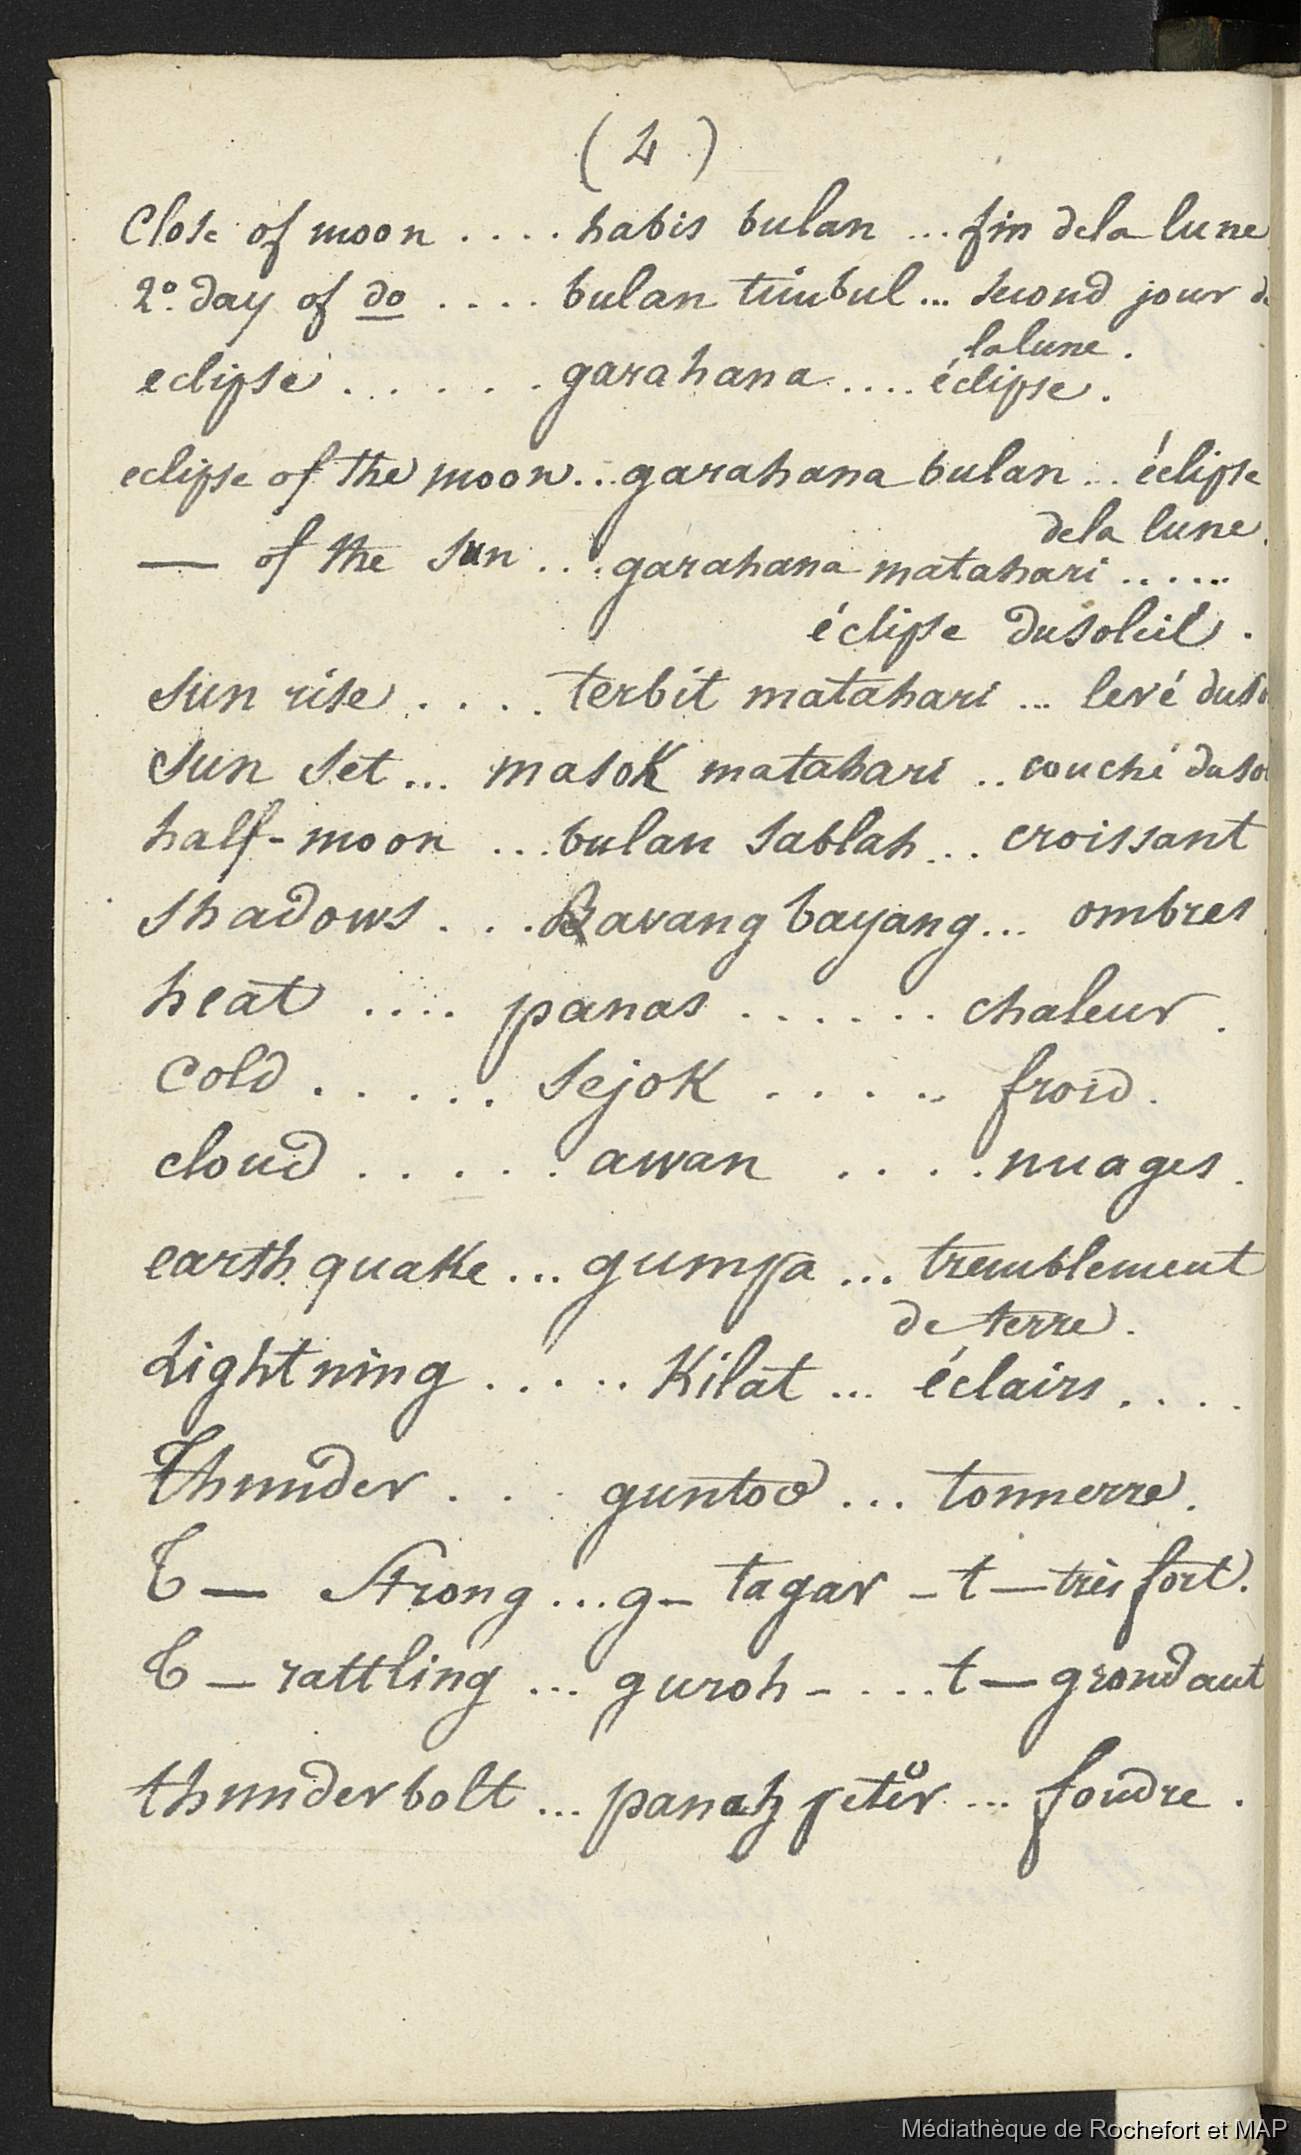 ( 4 )
Close of moon .... habis bulan ... fin dela lune
2° day of do .... bulan timbul ... second jour de
lalune.
eclipse ...... garahana .... éclipse.
eclipse of the moon... garahana bulan .. éclipse
dela lune.
— of the sun ... garahana matahari ......
éclipse du soleil.
Sun rise .... terbit matahari ... levé duso
Sun set ... masok matahari .. couché duso
half-moon ... bulan sablah ... croissant
shadows ... bayang ... ombres
heat .... panas ...... chaleur.
Cold ..... sejok ..... froid.
cloud ..... awan .... nuages.
earth quake ... gumpa ... tremblement
de terre.
Lightning ..... Kilat ... éclairs ....
Thunder ... ... tonnerre.
T — Strong ... g – tagar – t — très fort.
T — rattling ... guroh – .... t — grondant
thunderbolt ... panah petir ... foudre.
Médiathèque de Rochefort et MAP